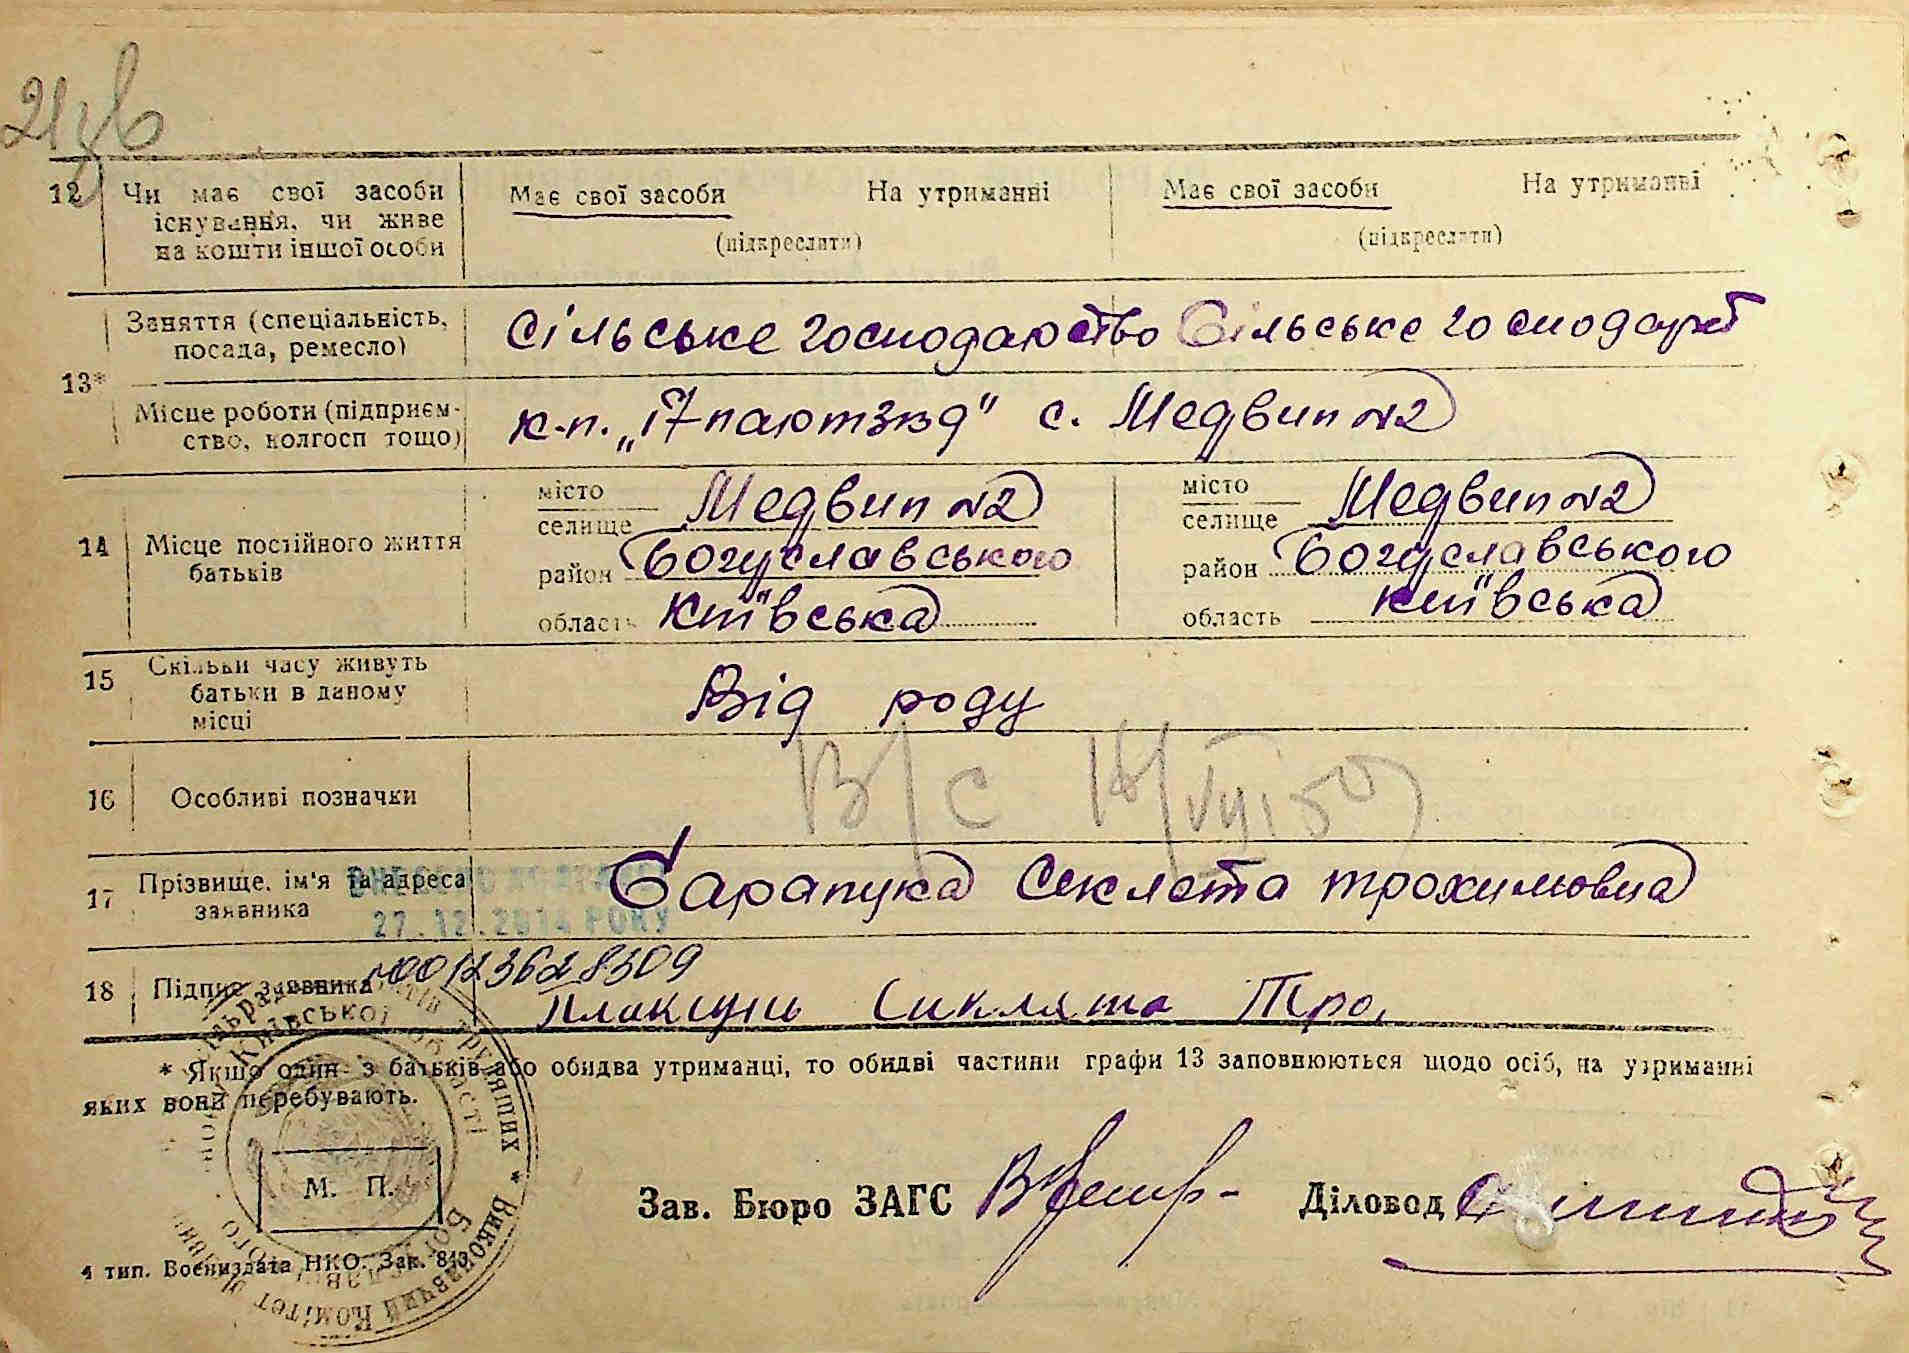 21зв
12 Чи має свої засоби існування, чи живе на кошти іншої особи
Має свої засоби На утриманні
(підкреслити)
Має свої засоби На утриманні
(підкреслити)
13*
Заняття (спеціальність, посада, ремесло)
Сільське господарство Сільське господарст
Місце роботи (підприєм-
ство, колгосп тощо)
к.п. „17 партзїзд" с. Медвин №2
14 Місце постійного життя батьків
місто
селище Медвин №2
район Богуславського
область Київська
місто
селище Медвин №2
район Богуславського
область Київська
15 Скільки часу живуть батьки в даному місці
Від роду
16 Особливі позначки
В/С
17 Прізвище, ім'я та адреса заявника
27.12.2014 РОКУ
Секлета Трохимовна
18 Підпис заявника
00123628309
Тро.
* Якщо один з батьків або обидва утриманці, то обидві частини графи 13 заповнюються щодо осіб, на утриманні
яких вони перебувають.
М. П.
Зав. Бюро ЗАГС
Діловод
4 тип. Воениздата НКО. Зак. 813
Київської області
трудящих * Виконавчий Комітет